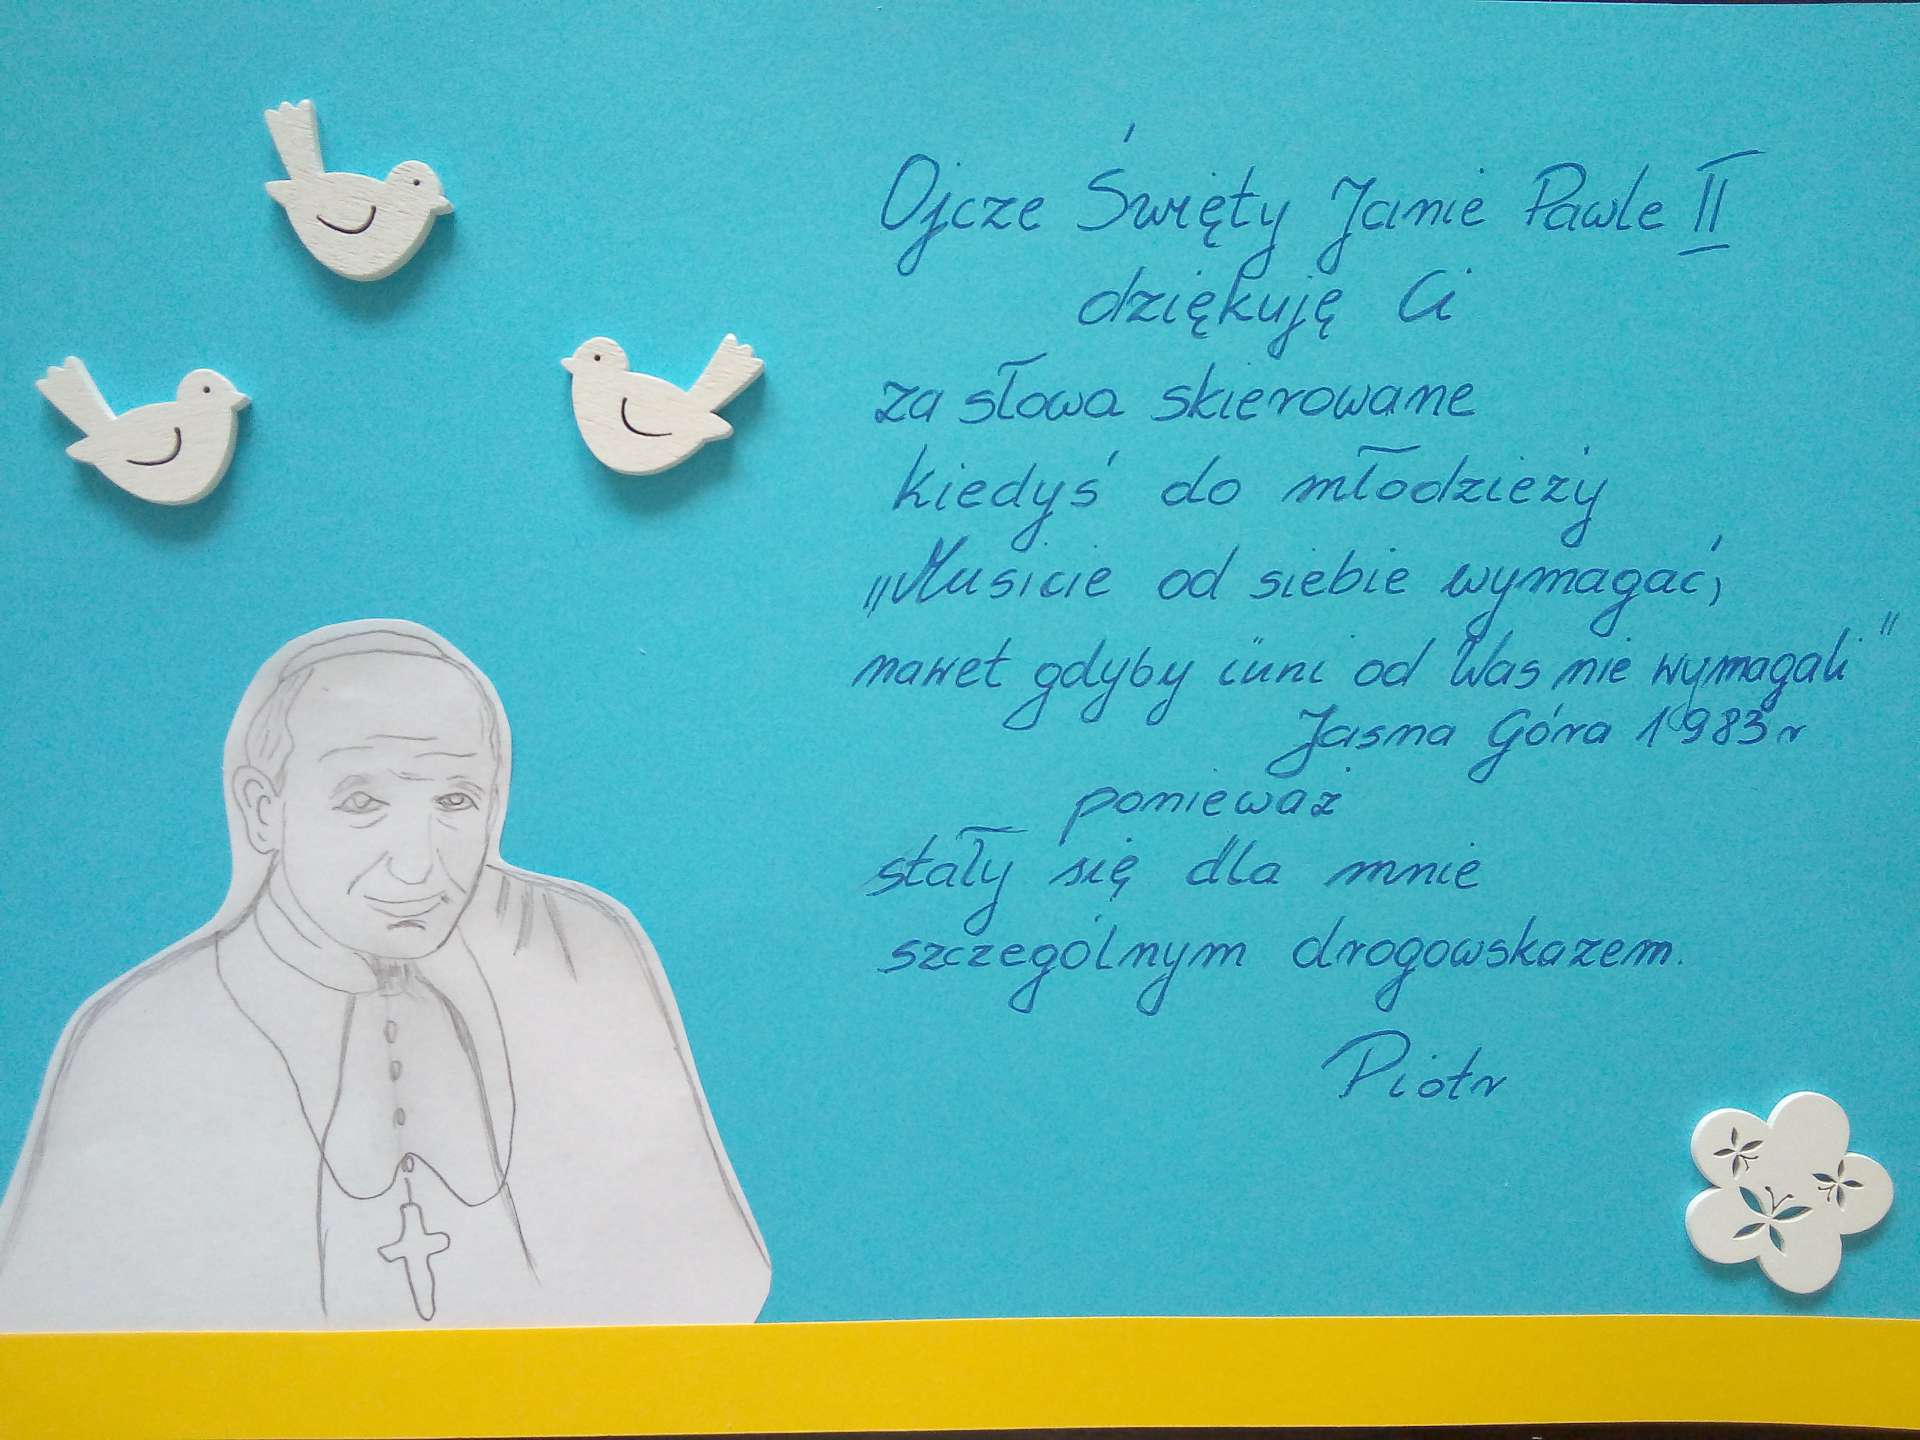 Ojcze Święty Janie Pawle II
dziękuję Ci
za słowa skierowane
kiedyś do młodzieży
„Musicie od siebie wymagać,
nawet gdyby inni od Was nie wymagali"
Jasna Góra 1983 r
ponieważ
stały się dla mnie
szczególnym drogowskazem.
Piotr